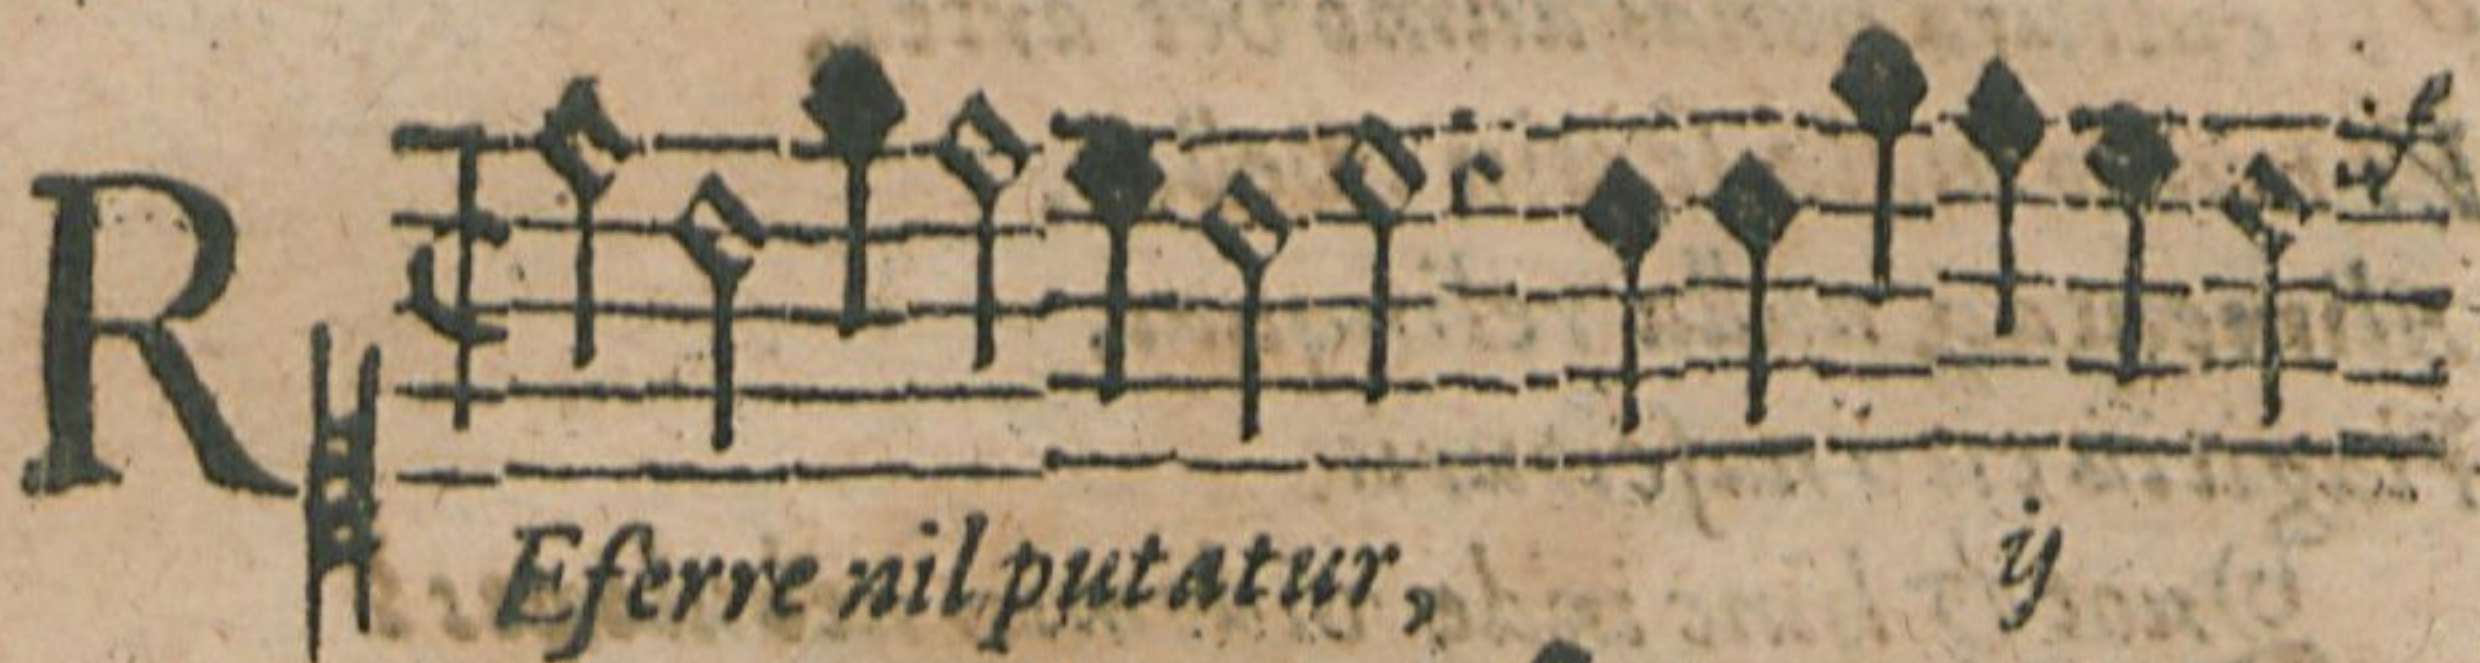 REferre nil putatur, ij